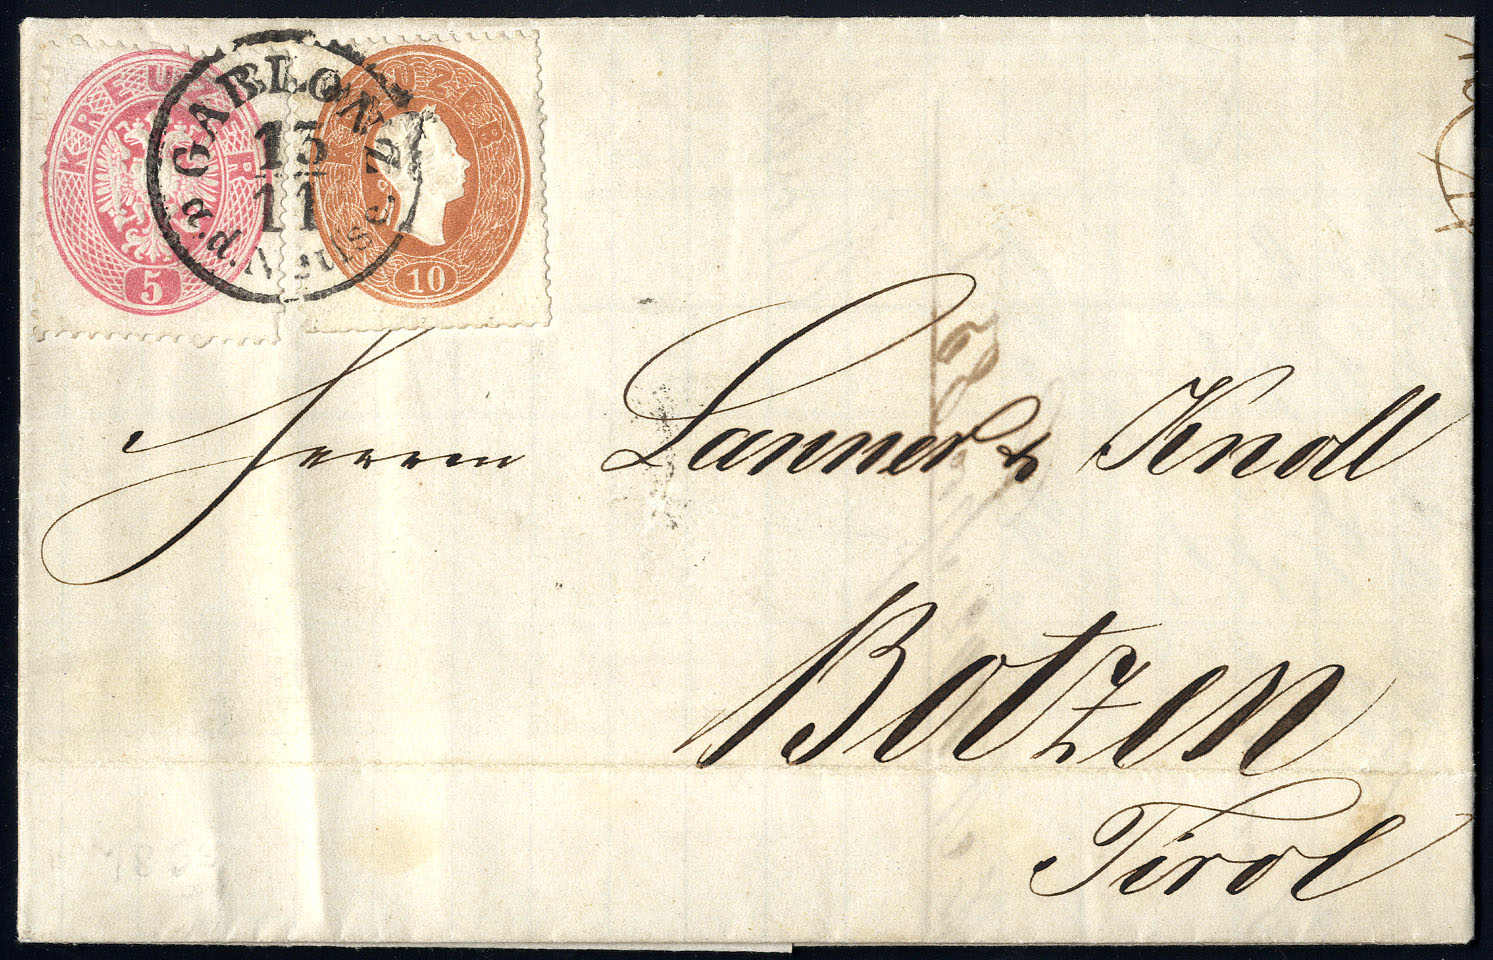 KREUZER
5
KREUZER
10
GABLONZ
13
11
Herren Lanner & Knoll
Botzen
Tirol